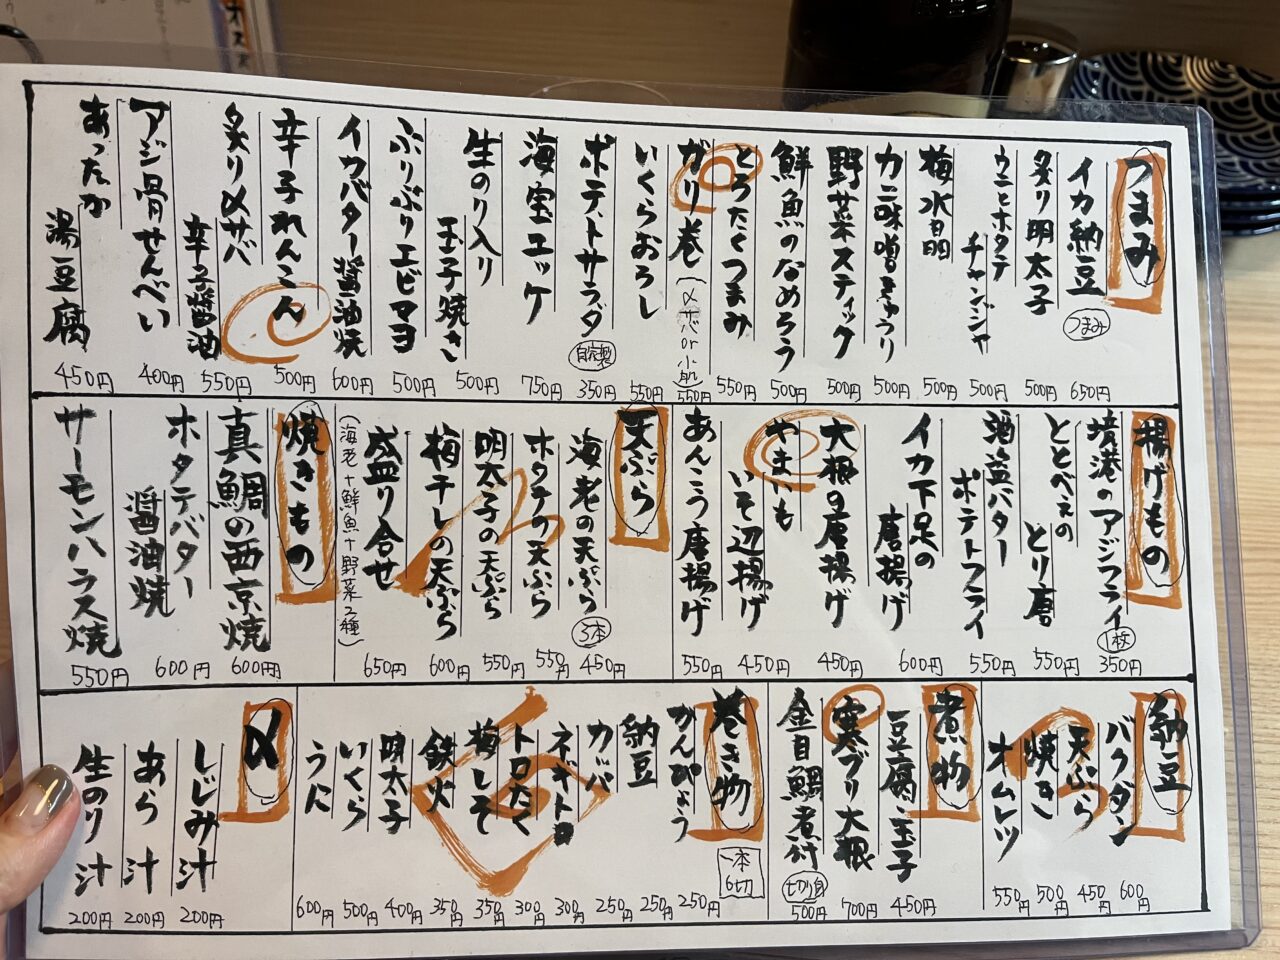 つまみ
イカ納豆 つまみ 650円
炙り明太子 500円
ウニとホタテ チャンジャ 500円
梅水晶 500円
カニ味噌きゅうり 500円
野菜スティック 500円
鮮魚のなめろう 500円
とろたくつまみ 550円
ガリ巻(〆サバor小肌) 550円
いくらおろし 550円
ポテトサラダ 自家製 350円
海宝ユッケ 750円
生のり入り 玉子焼き 500円
ぷりぷりエビマヨ 500円
イカバター醤油焼 600円
辛子れんこん 500円
炙り〆サバ 辛子醤油 550円
アジ骨せんべい 400円
あったか 湯豆腐 450円
揚げもの
境港のアジフライ 1枚 350円
ととべぇの とり唐 550円
酒盗バター ポテトフライ 550円
イカ下足の 唐揚げ 600円
大根の唐揚げ 450円
やまいも いそ辺揚げ 450円
あんこう唐揚げ 550円
天ぷら
海老の天ぷら 3本 450円
ホタテの天ぷら 550円
明太子の天ぷら 550円
梅干しの天ぷら 600円
盛り合せ 650円
(海老+鮮魚+野菜2種)
焼きもの
真鯛の西京焼 600円
ホタテバター 醤油焼 600円
サーモンハラス焼 550円
納豆
バクダン 600円
天ぷら 450円
焼き 500円
オムレツ 550円
煮物
豆腐、玉子 450円
寒ブリ大根 700円
金目鯛煮付 切り身 500円
巻き物 一本6切
かんぴょう 250円
納豆 250円
カッパ 250円
ネギトロ 300円
トロたく 300円
梅しそ 350円
鉄火 350円
明太子 400円
いくら 500円
うに 600円
〆
しじみ汁 200円
あら汁 200円
生のり汁 200円